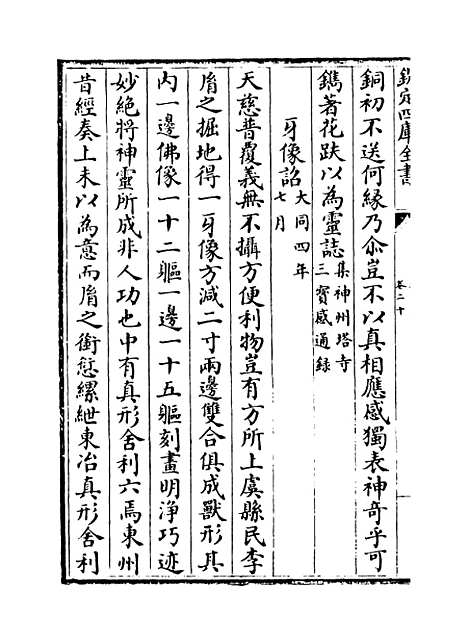 欽定四庫全書
卷二十
銅初不送何縁乃尒豈不以真相應感獨表神奇乎可
鐫著花趺以為靈誌集神州塔寺三寳感通錄
牙像詔大同四年七月
天慈普覆義無不攝方便利物豈有方所上虞縣民李
㣧之掘地得一牙像方減二寸兩邊雙合俱成獸形其
内一邊佛像一十二軀一邊一十五軀刻畫明淨巧迹
妙絶將神靈所成非人功也中有真形舍利六焉東州
昔經奏上未以為意而㣧之銜愆縲紲東冶真形舍利